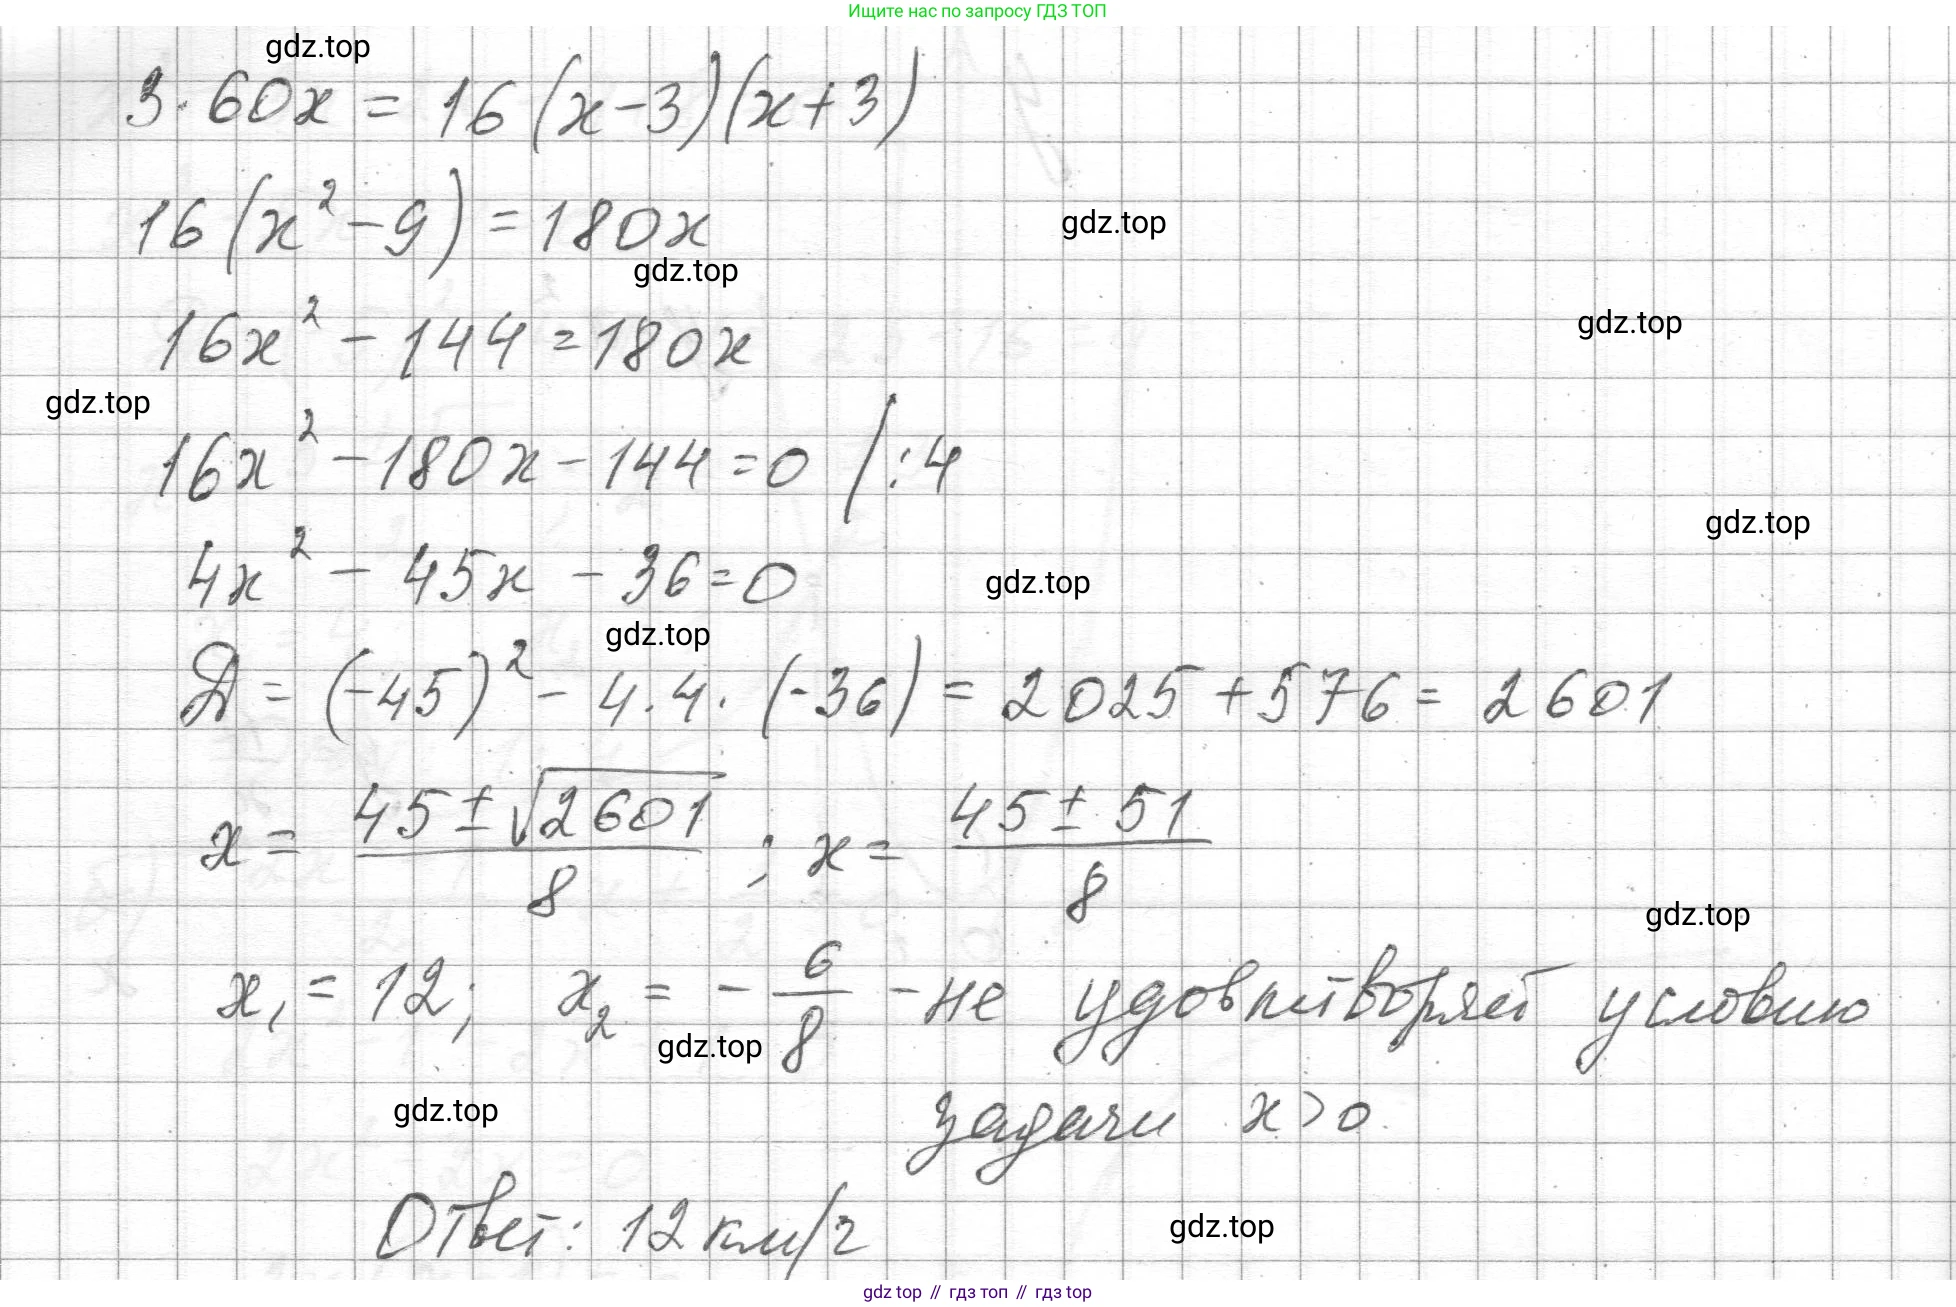 Ищите нас по запросу ГДЗ ТОП
gdz.top
3·60x = 16(x-3)(x+3)
16(x²-9) = 180x
gdz.top
gdz.top
16x² - 144 = 180x
gdz.top
gdz.top
16x² - 180x - 144 = 0 /:4
gdz.top
4x² - 45x - 36 = 0
gdz.top
gdz.top
Д = (-45)² - 4·4·(-36) = 2025 + 576 = 2601
x = (45 ± √2601)/8 ; x = (45 ± 51)/8
gdz.top
x₁ = 12; x₂ = -6/8 - не удовлетворяет условию
gdz.top
задачи x > 0
gdz.top
Ответ: 12 км/ч
gdz.top
gdz top // гдз топ // гдз top